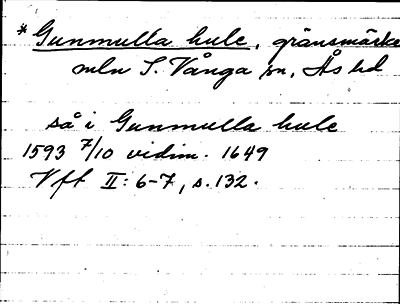 *Gunmulla hule, gränsmärke
mln S. Vånga sn, Ås hd
så i Gunmulla hule
1593 7/10 vidim. 1649
Vft II: 6-7, s. 132.